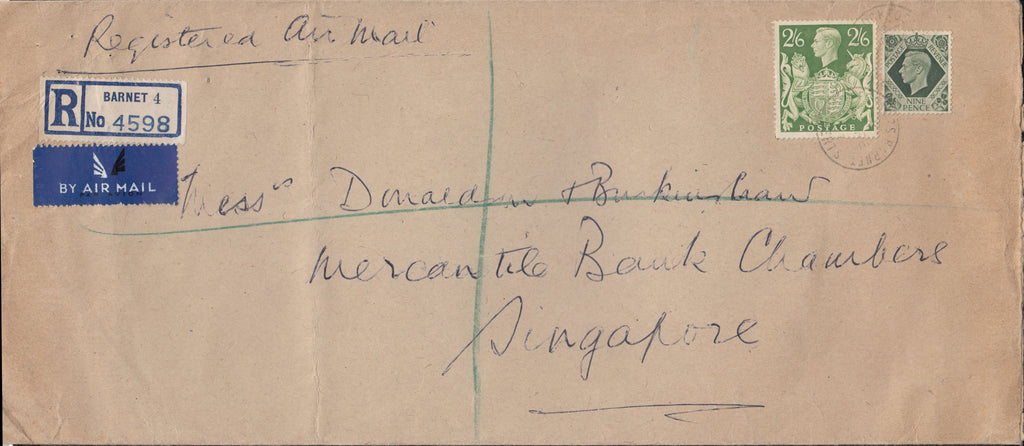 Registered Air Mail
R
BARNET 4
No 4598
BY AIR MAIL
2/6 2/6
POSTAGE
NINE
PENCE
Messrs Donaldson & Burkinshaw
Mercantile Bank Chambers
Singapore